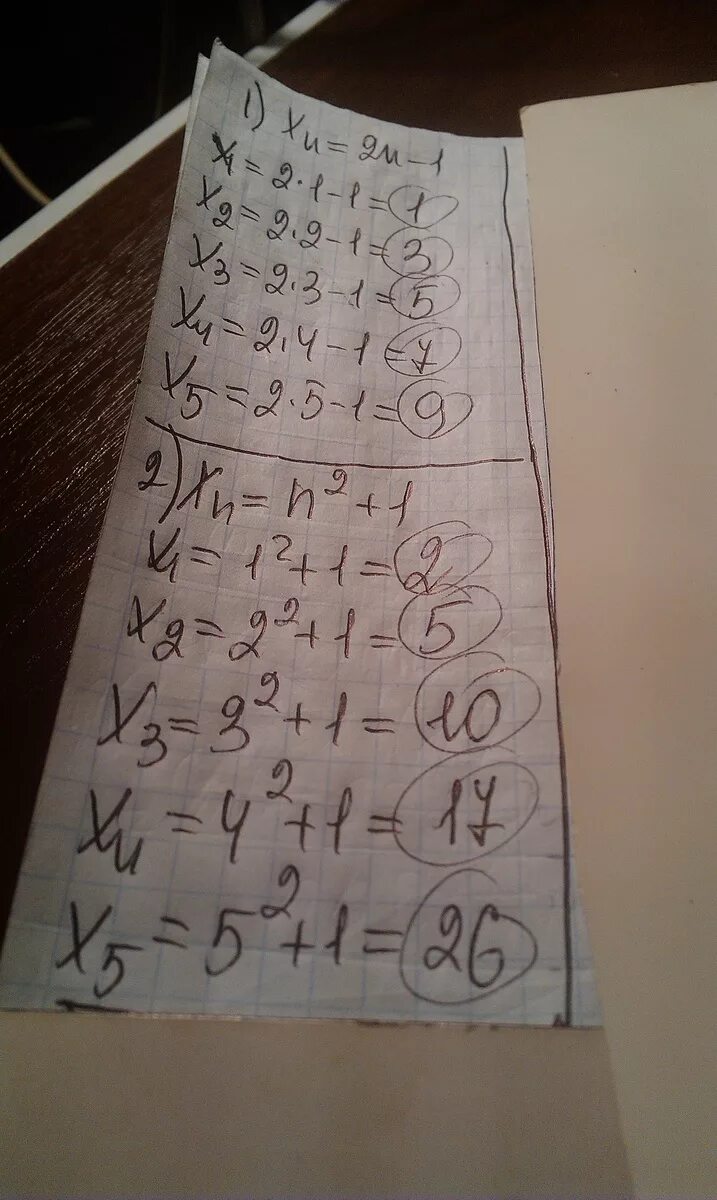 1) xn = 2n-1
x1 = 2·1-1 = 1
x2 = 2·2-1 = 3
x3 = 2·3-1 = 5
x4 = 2·4-1 = 7
x5 = 2·5-1 = 9
2) xn = n²+1
x1 = 1²+1 = 2
x2 = 2²+1 = 5
x3 = 3²+1 = 10
x4 = 4²+1 = 17
x5 = 5²+1 = 26